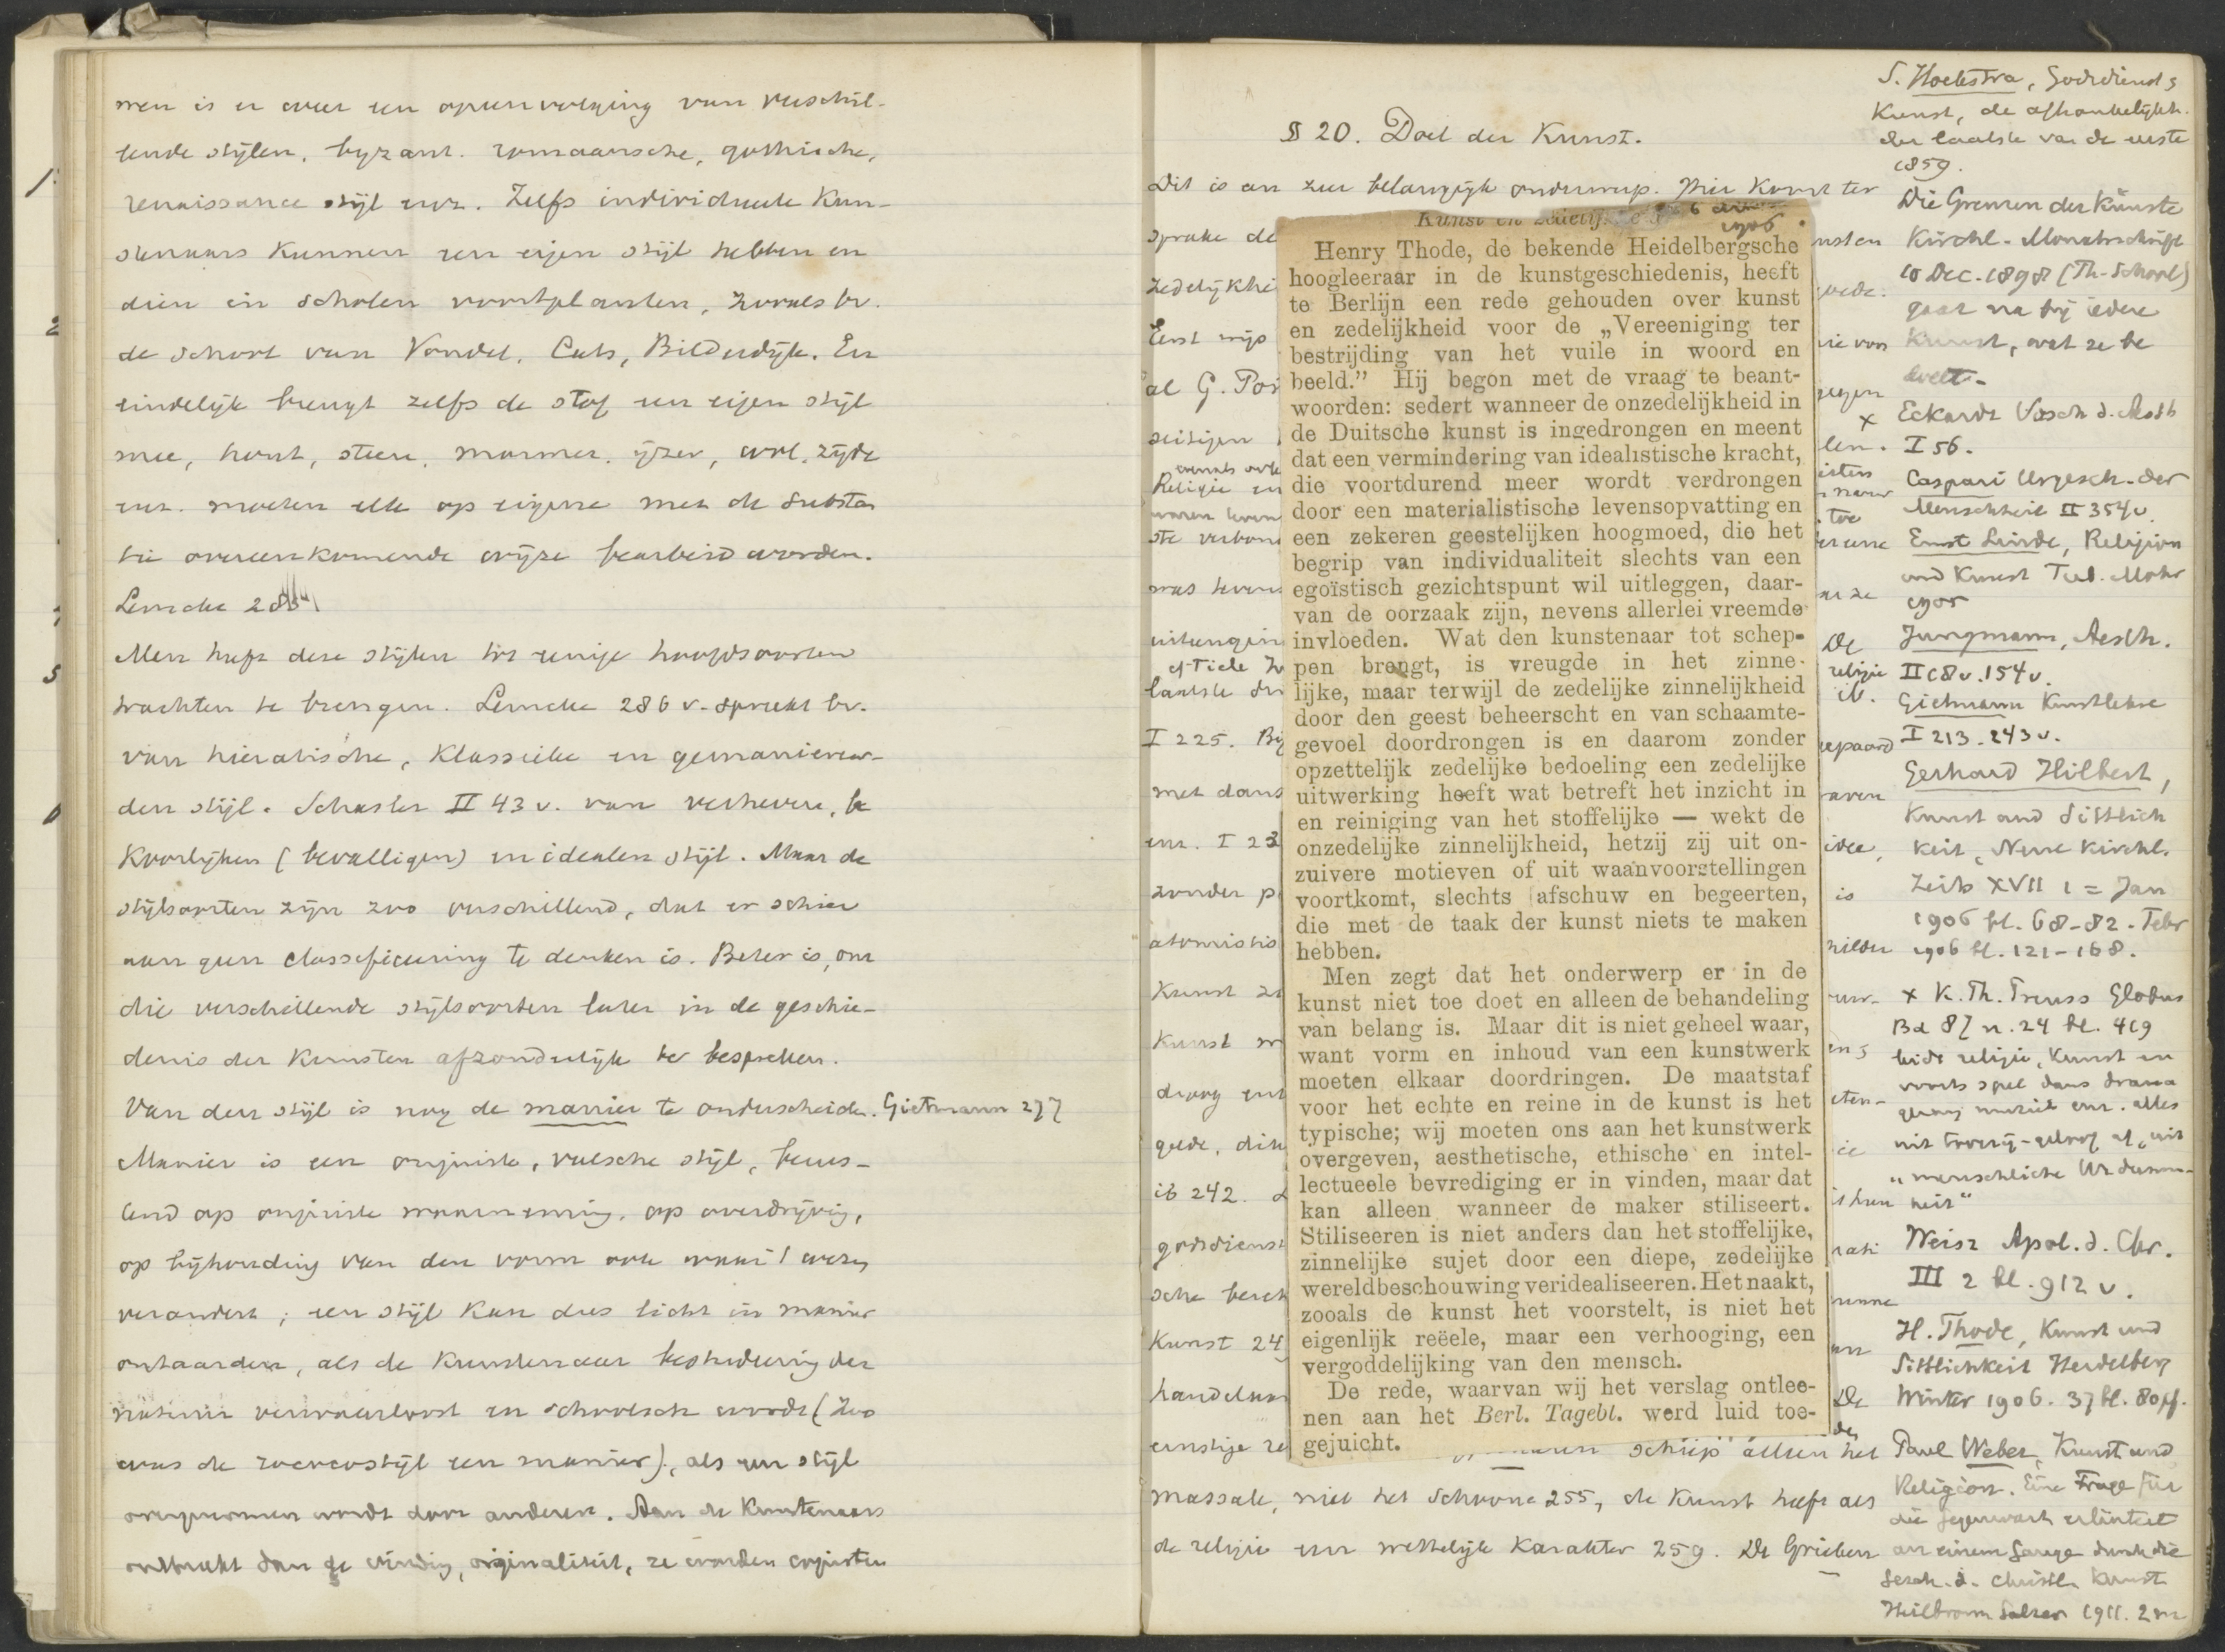 men is er weer een opeenvolging van verschil-
lende stijlen, byzant. romaansche, gothische,
renaissance stijl enz. Zelfs individueele kun-
stenaars kunnen een eigen stijl hebben en
dien in scholen voortplanten, zooals bv.
de school van Vondel, Cats, Bilderdijk. En
eindelijk brengt zelfs de stof een eigen stijl
mee, hout, steen, marmer, ijzer, wol, zijde
enz. moeten elk op eigene met de substan
tie overeenkomende wijze bearbeid worden.
Lemcke
Men heeft deze stijlen tot eenige hoofdsoorten
trachten te brengen. Lemcke 286 v. spreekt bv.
van hieratische, klassieke en gemaniereer-
den stijl. Schasler II 43 v. van verheven, be
koorlijken (bevalligen) en idealen stijl. Maar de
stijlsoorten zijn zoo verschillend, dat er schier
aan geen classificeering te denken is. Beter is, om
die verschillende stijlsoorten later in de geschie-
denis der Kunsten afzonderlijk te bespreken.
Van den stijl is nog de manier te onderscheiden. Gietmann 277
Manier is een onjuiste, valsche stijl, berus-
tend op onjuiste waarneming, op overdrijving,
op bijhouding van den vorm ook waar 't wezen
verandert; een stijl kan dus licht in manier
ontaarden, als de kunstenaar bestudeering der
natuur verwaarloost en schoolsch wordt (zoo
was de rococostijl een manier), als een stijl
overgenomen wordt door anderen. Aan de Kunstenaars
ontbreekt dan de vinding, originaliteit, ze worden copiisten
§ 20. Doel der Kunst.
Dit is een zeer belangrijk onderwerp. Hier komt ter
sprake de
zedelijkhe
Eerst wijs
al G. Por
Religie en
ste verbon
was heven
cf Tiele
laatste
I 225. Bij
met dans
enz. I 23
zonder p
atomistis
Kunst
Kunst
droeg
goede, di
ib 242.
godsdienst
sche
Kunst 24
handel
ernstige re
Kunst en zedelijkheid 6
1906.
Henry Thode, de bekende Heidelbergsche
hoogleeraar in de kunstgeschiedenis, heeft
te Berlijn een rede gehouden over kunst
en zedelijkheid voor de „Vereeniging ter
bestrijding van het vuile in woord en
beeld.” Hij begon met de vraag te beant-
woorden: sedert wanneer de onzedelijkheid in
de Duitsche kunst is ingedrongen en meent
dat een vermindering van idealistische kracht,
die voortdurend meer wordt verdrongen
door een materialistische levensopvatting en
een zekeren geestelijken hoogmoed, die het
begrip van individualiteit slechts van een
egoïstisch gezichtspunt wil uitleggen, daar-
van de oorzaak zijn, nevens allerlei vreemde
invloeden. Wat den kunstenaar tot schep-
pen brengt, is vreugde in het zinne-
lijke, maar terwijl de zedelijke zinnelijkheid
door den geest beheerscht en van schaamte-
gevoel doordrongen is en daarom zonder
opzettelijk zedelijke bedoeling een zedelijke
uitwerking heeft wat betreft het inzicht in
en reiniging van het stoffelijke — wekt de
onzedelijke zinnelijkheid, hetzij zij uit on-
zuivere motieven of uit waanvoorstellingen
voortkomt, slechts afschuw en begeerten,
die met de taak der kunst niets te maken
hebben.
Men zegt dat het onderwerp er in de
kunst niet toe doet en alleen de behandeling
van belang is. Maar dit is niet geheel waar,
want vorm en inhoud van een kunstwerk
moeten elkaar doordringen. De maatstaf
voor het echte en reine in de kunst is het
typische; wij moeten ons aan het kunstwerk
overgeven, aesthetische, ethische en intel-
lectueele bevrediging er in vinden, maar dat
kan alleen wanneer de maker stiliseert.
Stiliseeren is niet anders dan het stoffelijke,
zinnelijke sujet door een diepe, zedelijke
wereldbeschouwing veridealiseeren. Het naakt,
zooals de kunst het voorstelt, is niet het
eigenlijk reëele, maar een verhooging, een
vergoddelijking van den mensch.
De rede, waarvan wij het verslag ontlee-
nen aan het Berl. Tagebl. werd luid toe-
gejuicht.
schiep alleen het
massale, niet het Schoone 255, de Kunst heeft als
de religie een wettelijk karakter 259. De Grieken
S. Hoekstra, Godsdienst &
Kunst, de afhankelijkh.
der laatste van de eerste
1859.
Die Grenzen der Künste
Kirchl. Monatsschrift
10 Dec. 1898 (Th-School)
gaat na bij iedere
Kunst, wat ze be
doelt.
x Eckardt Vorsch d. Aesth
I 56.
Caspari Urgesch. der
Menschheit II 354 v.
Ernst Linde, Religion
und Kunst Tub. Mohr
1905
Jungmann, Aesth.
II 68 v. 154 v.
Gietmann Kunstlehre
I 213. 243 v.
Gerhard Hilbert,
Kunst und Sittlich
keit, Neue Kirchl.
Zeits XVII 1 = Jan
1906 bl. 68-82. Febr
1906 bl. 121-168.
x K. Th. Preuss Globus
Bd 87 n. 24 bl. 419
leidt religie, Kunst en
voorts spel dans drama
gezang muziek enz. alles
uit toverij-geloof af, uit
„menschliche Urdumm-
heit“
Weisz Apol. d. Chr.
III 2 bl. 912 v.
H. Thode, Kunst und
Sittlichkeit Heidelberg
Winter 1906. 37 bl. 80 pf.
Paul Weber, Kunst und
Religion. Eine Frage für
die Gegenwart erläutert
an einem Gange durch die
Gesch. d. christl. Kunst
Heilbronn Salzer 1911. 2 m